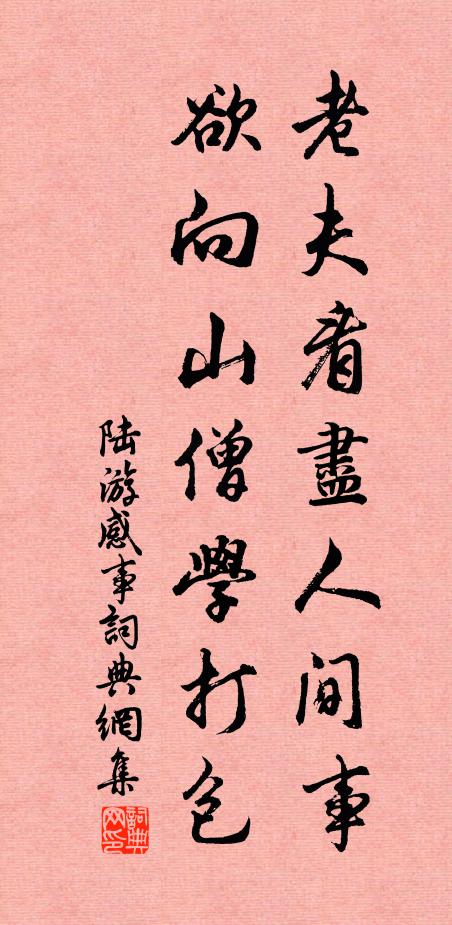 老夫看盡人间事
欲向山僧學打包
陆游感事詞典網集
詞典
网印